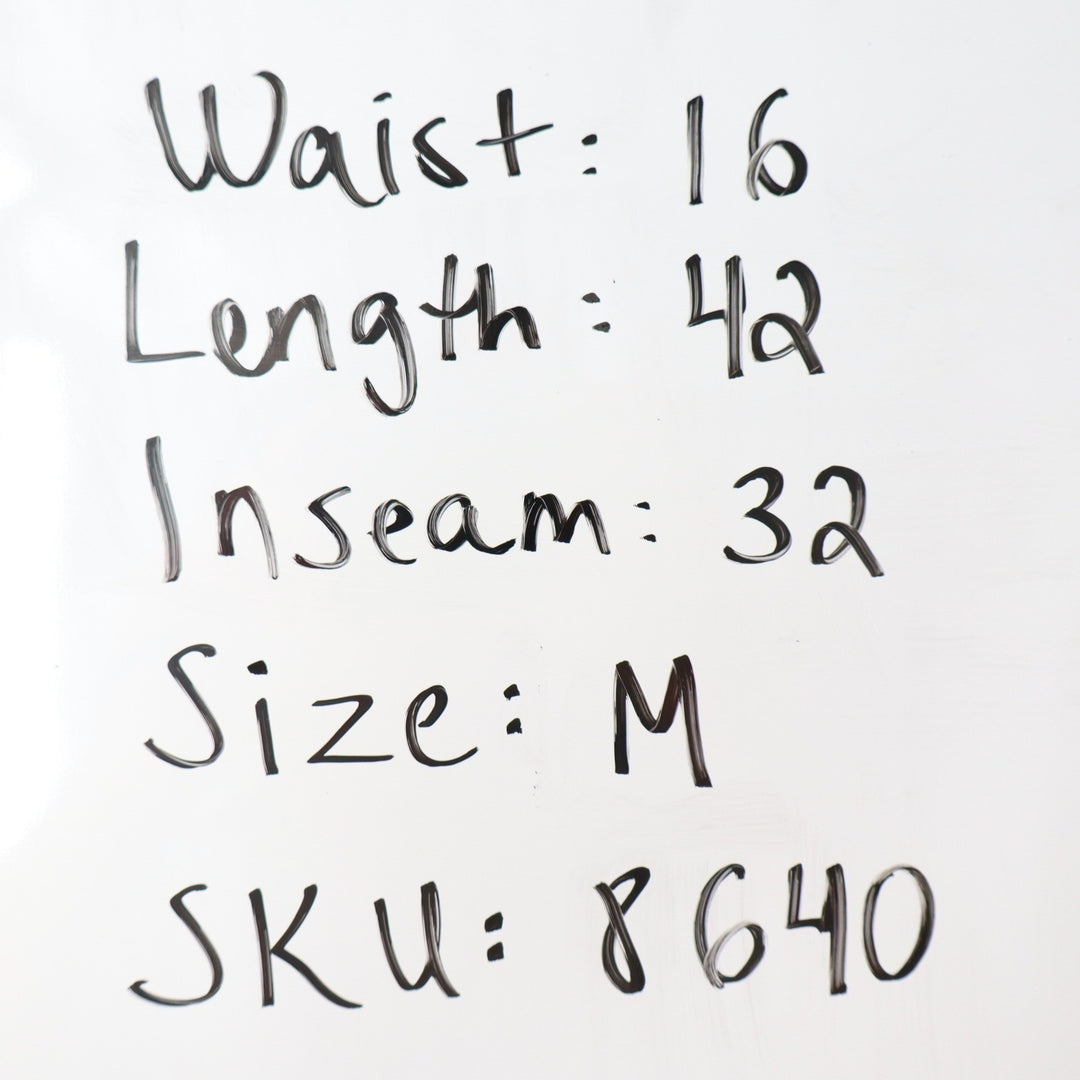 Waist: 16
Length: 42
Inseam: 32
Size: M
SKU: 8640